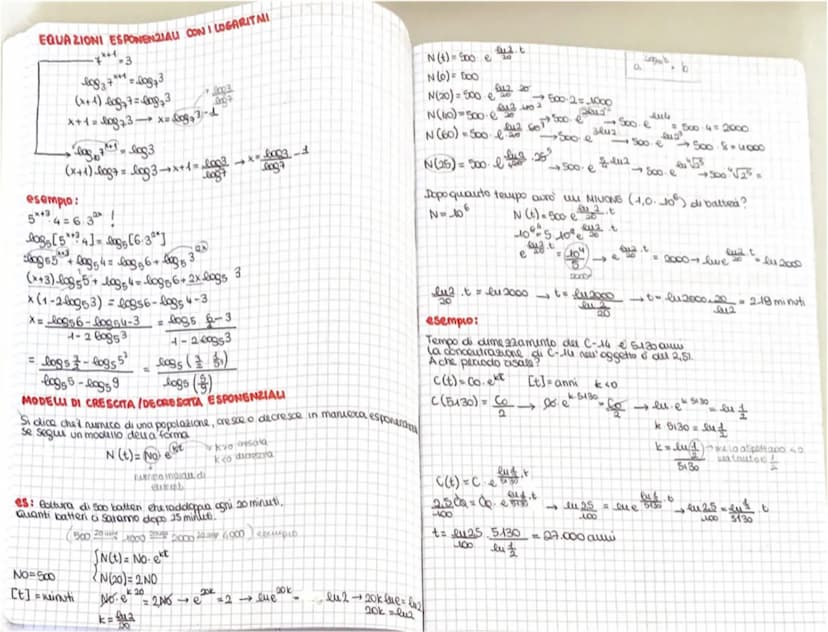 EQUAZIONI ESPONENZIALI CON I LOGARITMI
7^(x+1) = 3
log₇ 7^(x+1) = log₇ 3
(x+1) log₇ 7 = log₇ 3
x+1 = log₇ 3 → x = log₇ 3 - 1
log3/log7
log₁₀ 7^(x+1) = log 3
(x+1) log 7 = log 3 → x+1 = log3/log7 → x = log3/log7 - 1
esempio:
5^(x+3) · 4 = 6 · 3^(2x) !
log₅ [5^(x+3) · 4] = log₅ [6 · 3^(2x)]
log₅ 5^(x+3) + log₅ 4 = log₅ 6 + log₅ 3^(2x)
(x+3) · log₅ 5 + log₅ 4 = log₅ 6 + 2x log₅ 3
x (1 - 2 log₅ 3) = log₅ 6 - log₅ 4 - 3
x = (log₅ 6 - log₅ 4 - 3)/(1 - 2 log₅ 3) = (log₅ 6/4 - 3)/(1 - 2 log₅ 3)
= (log₅ 3/2 - log₅ 5³)/(log₅ 5 - log₅ 9) = log₅ (3/2 · 1/5³)/log₅ (5/9)
MODELLI DI CRESCITA/DECRESCITA ESPONENZIALI
Si dice che il numero di una popolazione, cresce o decresce in maniera esponenziale
se segue un modello della forma
N(t) = N₀ e^(kt)
k>0 crescita
k<0 decrescita
numero iniziale di
es: Coltura di 500 batteri che raddoppia ogni 20 minuti.
Quanti batteri ci saranno dopo 25 minuti.
(500 20 min 1000 20 min 2000 20 min 4000) esempio
{N(t) = N₀ · e^(kt)
N₀ = 500 {N(20) = 2N₀
[t] = minuti N₀ · e^(k 20) = 2N₀ → e^(20k) = 2 → ln e^(20k) = ln 2 → 20k ln e = ln 2
20k = ln2
k = ln2/20
N(t) = 500 · e^(ln2/20 · t)
N(0) = 500
N(20) = 500 · e^(ln2/20 · 20) → 500 · 2 = 1000
N(40) = 500 · e^(ln2/20 · 40) → 500 · e^(2ln2) → 500 · e^(ln4) = 500 · 4 = 2000
N(60) = 500 · e^(ln2/20 · 60) → 500 · e^(3ln2) → 500 · e^(ln2³) → 500 · 8 = 4000
N(25) = 500 · e^(ln2/20 · 25) → 500 · e^(5/4 ln2) → 500 · e^(ln ⁴√2⁵) → 500 ⁴√2⁵ =
Dopo quanto tempo avrò un MILIONE (1,0 · 10⁶) di batteri?
N = 10⁶ N(t) = 500 e^(ln2/20 · t)
10⁶ = 5 · 10² e^(ln2/20 · t)
e^(ln2/20 · t) = 10⁴/5 → e^(ln2/20 · t) = 2000 → ln e^(ln2/20 · t) = ln 2000
ln2/20 · t = ln 2000 → t = ln2000/(ln2/20) → t = ln 2000 · 20/ln2 = 219 minuti
esempio:
Tempo di dimezzamento del C-14 è 5130 anni
La concentrazione di C-14 nell'oggetto è del 2,5%.
A che periodo risale?
C(t) = C₀ · e^(kt) [t] = anni k<0
C(5130) = C₀/2 → C₀ · e^(k·5130) = C₀/2 → ln · e^(k 5130) = ln 1/2
k 5130 = ln 1/2
k = ln(1/2)/5130
C(t) = C · e^(ln½/5130 · t)
2,5/100 C₀ = C₀ · e^(ln½/5130 · t) → ln 2,5/100 = ln e^(ln½/5130 · t) → ln 2,5/100 = ln½/5130 · t
t = ln 2,5/100 · 5130/ln½ = 27.000 anni